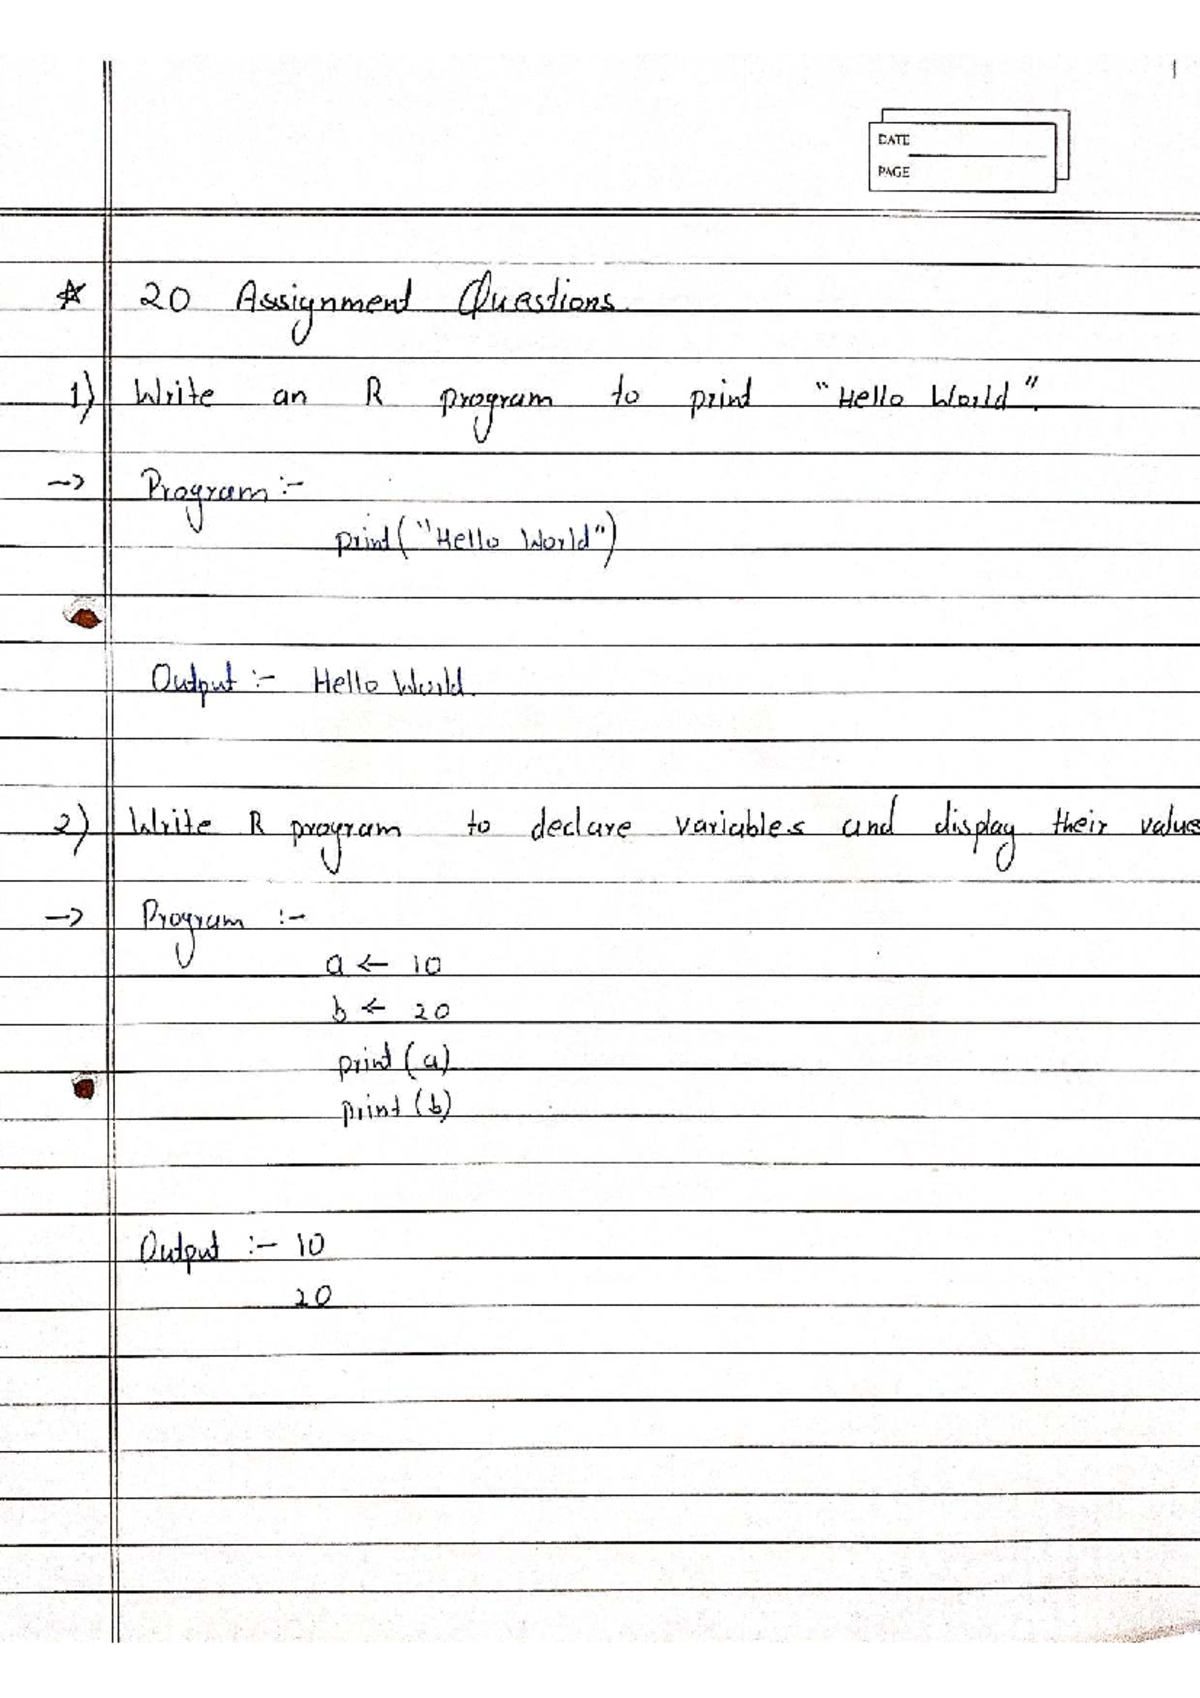 DATE
PAGE
☆ 20 Assignment Questions.
1) Write an R program to print "Hello World".
-> Program :-
print("Hello World")
Output :- Hello World.
2) Write R program to declare variables and display their values
-> Program :-
a <- 10
b <- 20
print (a)
print (b)
Output :- 10
20